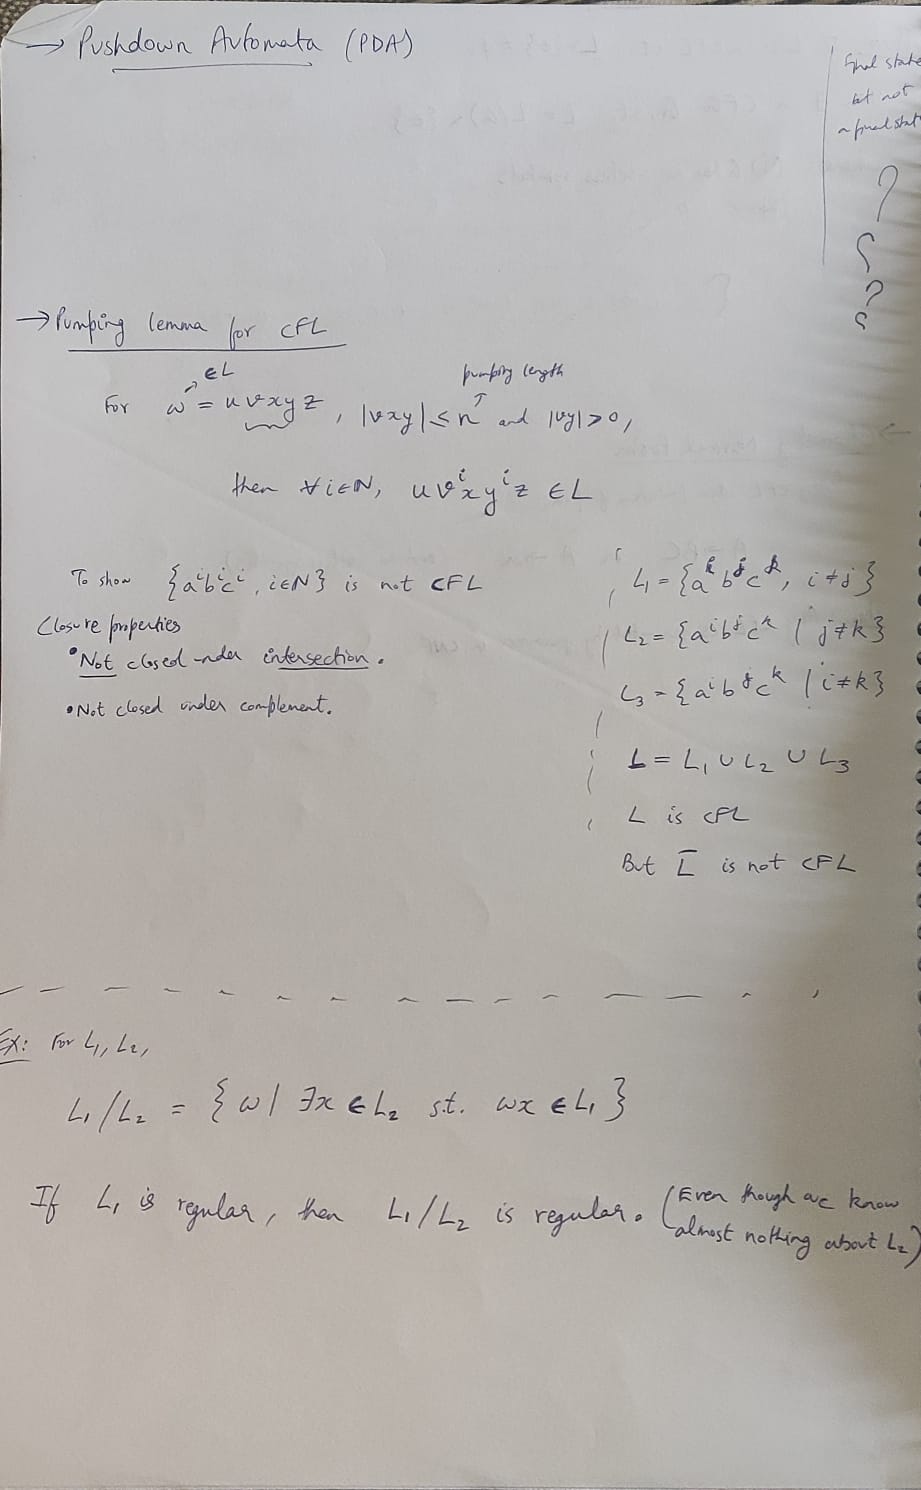 → Pushdown Automata (PDA)
final state
but not
a final stat
?
?
→ Pumping lemma for CFL
∈L
pumping length
For w = uvxyz, |vxy| ≤ n and |vy| > 0,
then ∀i∈N, uvⁱxyⁱz ∈ L
To show {aⁱbⁱcⁱ, i∈N} is not CFL
Closure properties
• Not closed under intersection.
• Not closed under complement.
L₁ = {aᵏbʲcᵏ, i≠j}
L₂ = {aⁱbʲcᵏ | j≠k}
L₃ = {aⁱbʲcᵏ | i≠k}
L = L₁ ∪ L₂ ∪ L₃
L is CFL
But L̅ is not CFL
Ex: For L₁, L₂,
L₁/L₂ = {w | ∃x ∈ L₂ s.t. wx ∈ L₁}
If L₁ is regular, then L₁/L₂ is regular. (Even though we know
almost nothing about L₂)